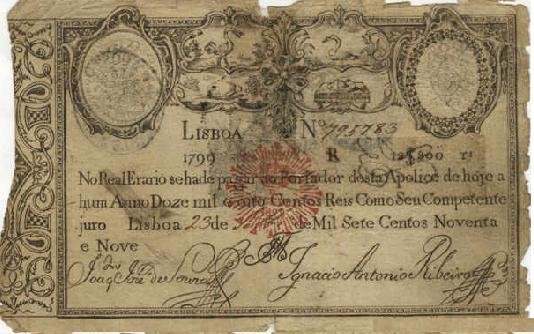 LISBOA Nº 795783
1799 R 12$800 rs
No Real Erario se ha de pagar ao Portador desta Apolice de hoje a
hum Anno Doze mil e outo Centos Reis Como Seu Competente
juro Lisboa 23 de de Mil Sete Centos Noventa
e Nove
Joaq. José de Ignacio Antonio Ribeiro